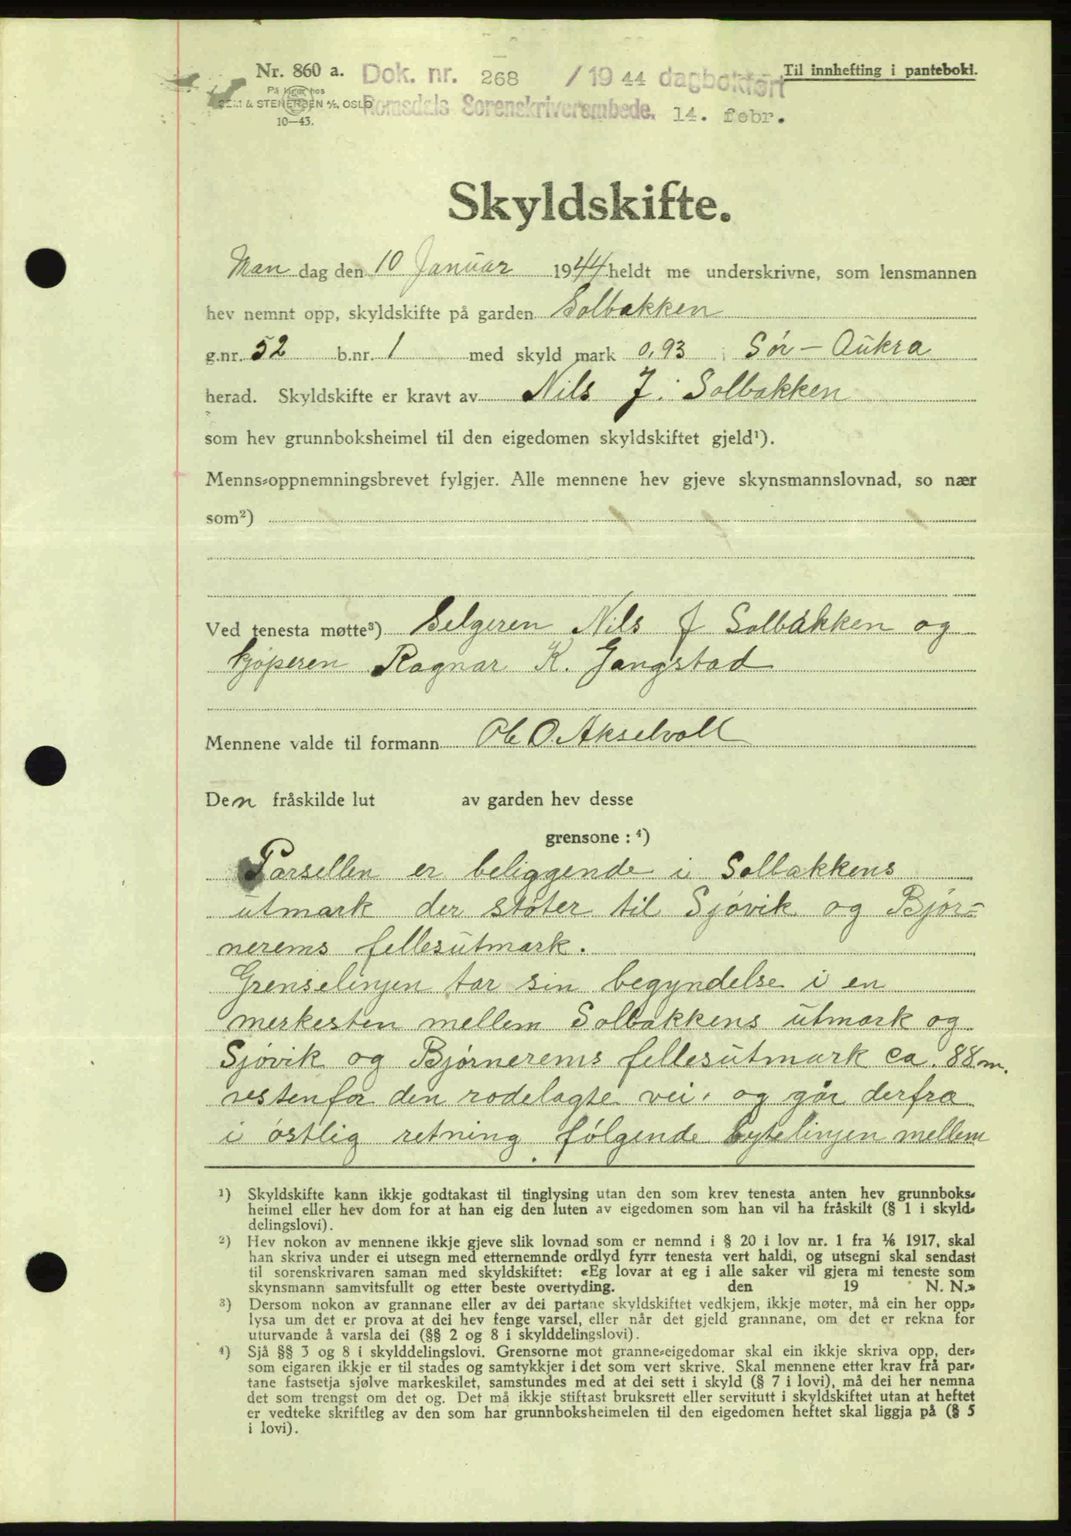 Nr. 860 a.
Dok. nr. 268 /1944 dagbokført
Til innhefting i pantebok.
På lager hos
SEM & STENERSEN A/S, OSLO
Romsdals Sorenskriverembede. 14. febr.
10—43.
Skyldskifte.
Man dag den 10 Januar 1944 heldt me underskrivne, som lensmannen
hev nemnt opp, skyldskifte på garden Solbakken
g.nr. 52 b.nr. 1 med skyld mark 0,93 i Sør-Aukra
herad. Skyldskifte er kravt av Nils J. Solbakken
som hev grunnboksheimel til den eigedomen skyldskiftet gjeld¹).
Menns-oppnemningsbrevet fylgjer. Alle mennene hev gjeve skynsmannslovnad, so nær
som²)
Ved tenesta møtte³) Selgeren Nils J Solbakken og
kjøperen Ragnar K. Gangstad
Mennene valde til formann Ole O. Akselvoll
Den fråskilde lut av garden hev desse
grensone : ⁴)
Parsellen er beliggende i Solbakkens
utmark der støter til Sjøvik og Bjør=
nerems fellesutmark.
Grenselinjen tar sin begyndelse i en
merkesten mellem Solbakkens utmark og
Sjøvik og Bjørnerems fellesutmark ca. 88 m.
vestenfor den rodelagte vei, og går derfra
i østlig retning følgende bytelinjen mellem
¹) Skyldskifte kann ikkje godtakast til tinglysing utan den som krev tenesta anten hev grunnboks-
heimel eller hev dom for at han eig den luten av eigedomen som han vil ha fråskilt (§ 1 i skyld-
delingslovi).
²) Hev nokon av mennene ikkje gjeve slik lovnad som er nemnd i § 20 i lov nr. 1 fra 1/6 1917, skal
han skriva under ei utsegn med etternemnde ordlyd fyrr tenesta vert haldi, og utsegni skal sendast
til sorenskrivaren saman med skyldskiftet: «Eg lovar at eg i alle saker vil gjera mi teneste som
skynsmann samvitsfullt og etter beste overtyding. den 19 N. N.»
³) Dersom nokon av grannane eller av dei partane skyldskiftet vedkjem, ikkje møter, må ein her opp-
lysa um det er prova at dei hev fenge varsel, eller når det gjeld grannane, om det er rekna for
uturvande å varsla dei (§§ 2 og 8 i skylddelingslovi).
⁴) Sjå §§ 3 og 8 i skylddelingslovi. Grensorne mot granne-eigedomar skal ein ikkje skriva opp, der-
som eigaren ikkje er til stades og samtykkjer i det som vert skrive. Skal mennene etter krav frå par-
tane fastsetja sjølve markeskilet, samstundes med at dei sett i skyld (§ 7 i lovi), må dei her nemna
det som trengst om det og. Det må ikkje stiftast bruksrett eller servitutt i skyldskiftet utan at heftet
er vedteke skriftleg av den som har grunnboksheimelen til den eigedomen heftet skal liggja på (§ 5
i lovi).